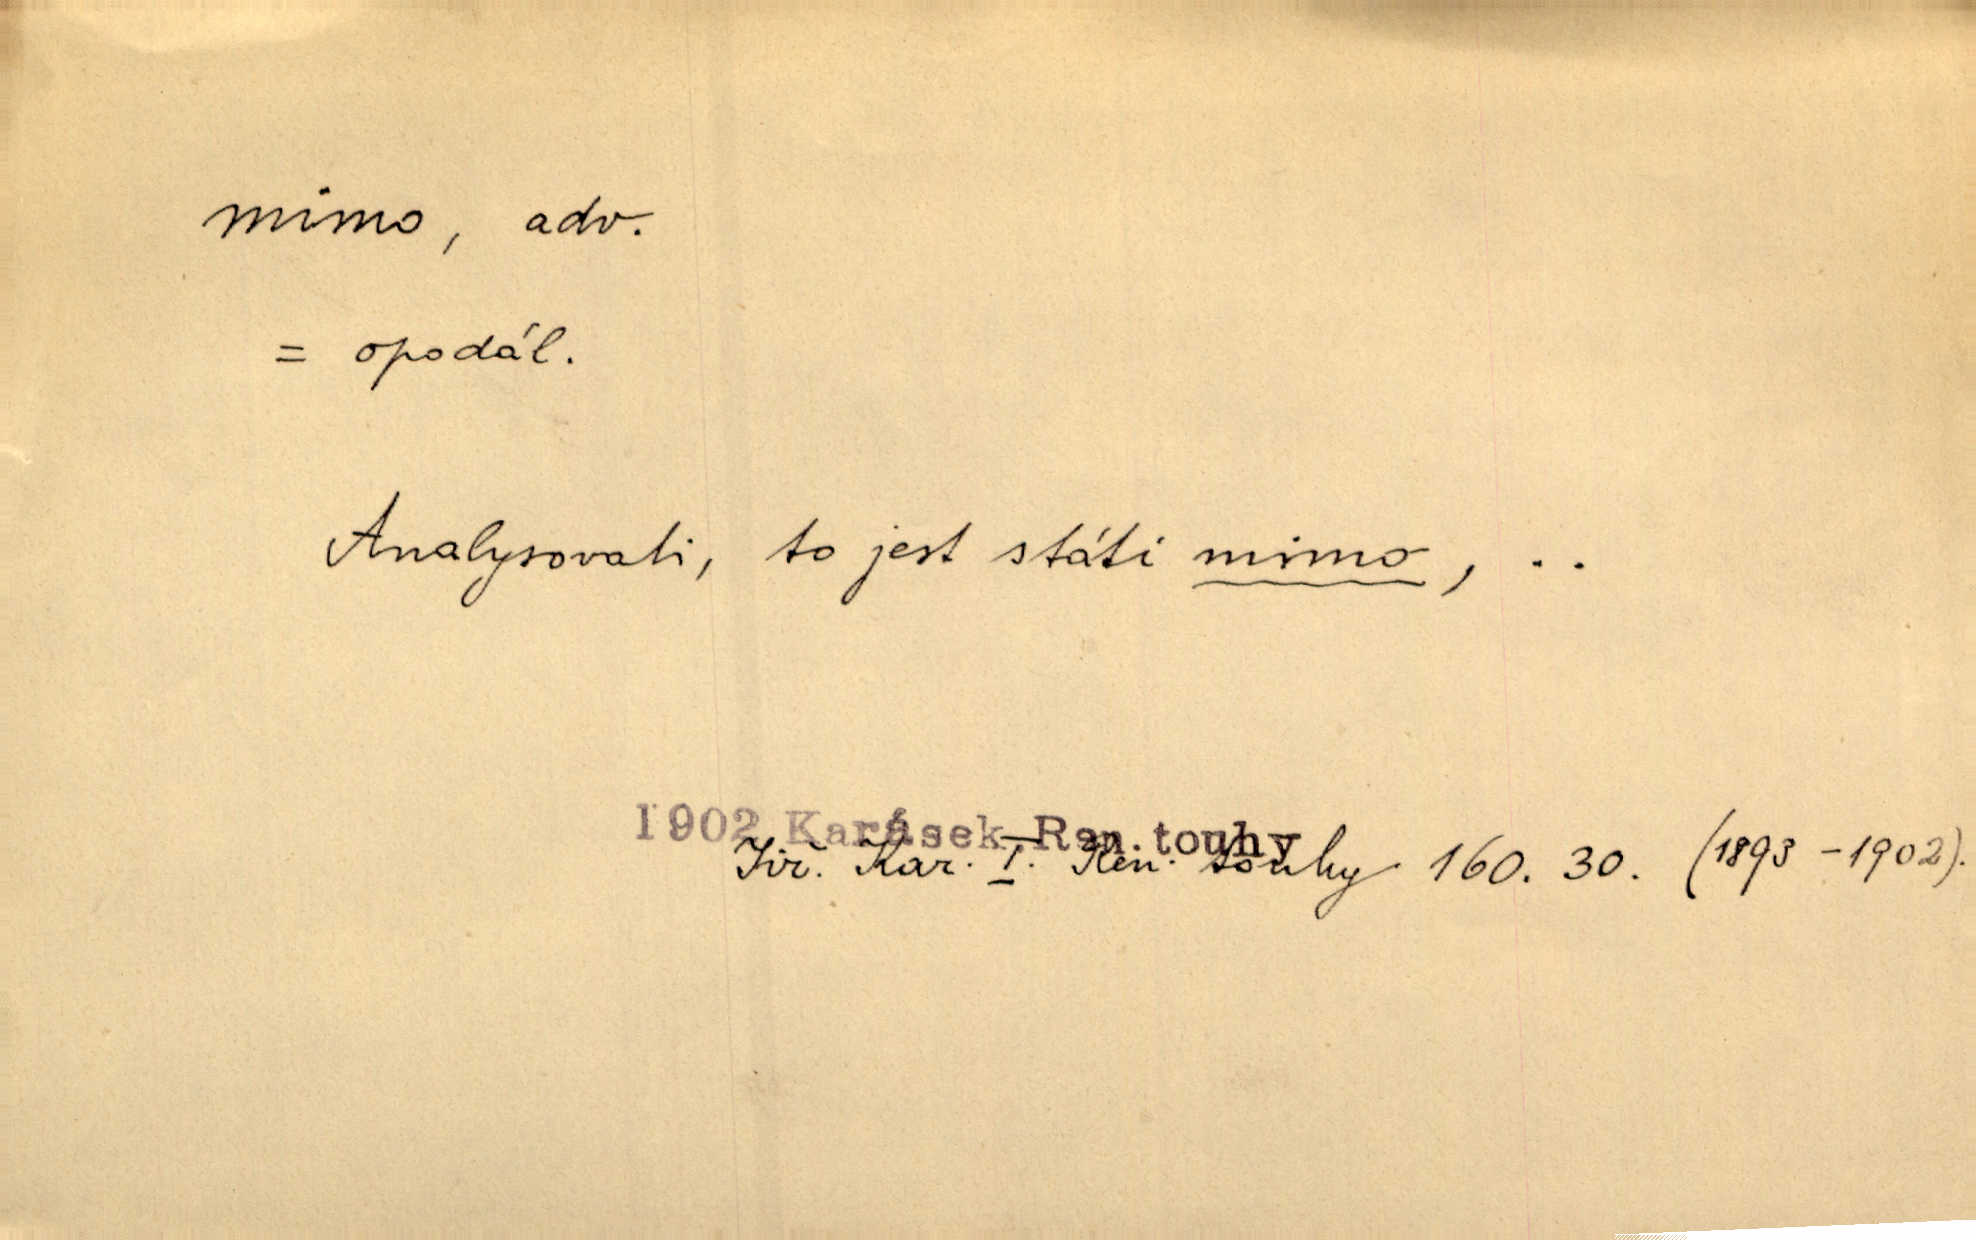 mimo, adv.
= opodál.
Analysovati, to jest státi mimo, ..
1902 Karásek, Ren. touhy
Jiř. Kar. I. Ren. touhy 160. 30. (1893 - 1902).